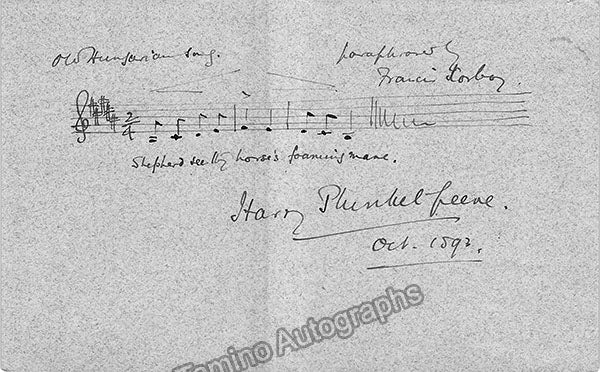 Old Hungarian Song.
paraphrased by
Francis Korbay.
2/4
Shepherd see thy horse's foaming mane.
Harry Plunket Greene.
Oct. 1893.
Tamino Autographs